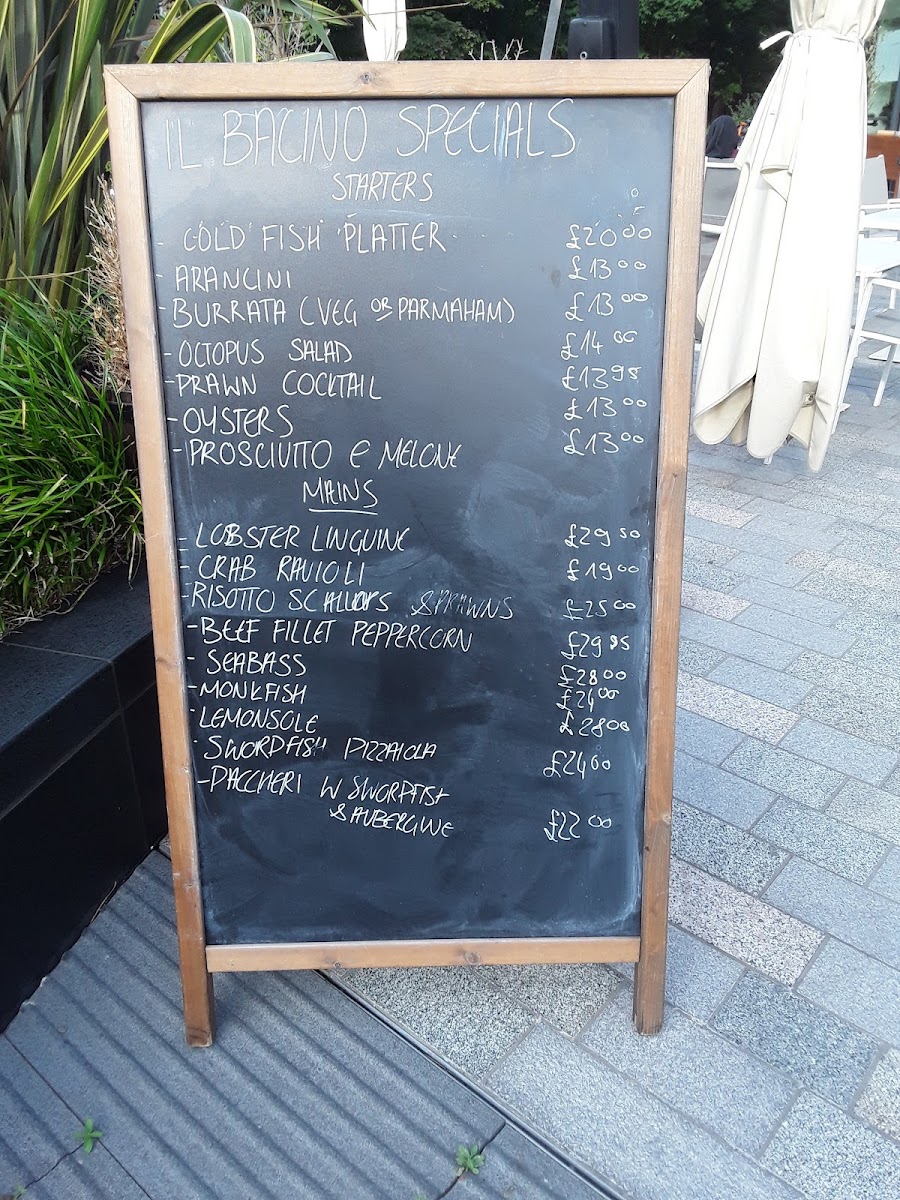 IL BACINO SPECIALS
STARTERS
- COLD FISH PLATTER £20 00
- ARANCINI £13 00
- BURRATA (VEG OR PARMAHAM) £13 00
- OCTOPUS SALAD £14 00
- PRAWN COCKTAIL £13 95
- OYSTERS £13 00
- PROSCIUTTO E MELONE £13 00
MAINS
- LOBSTER LINGUINE £29 50
- CRAB RAVIOLI £19 00
- RISOTTO SCALLOPS & PRAWNS £25 00
- BEEF FILLET PEPPERCORN £29 95
- SEABASS £28 00
- MONKFISH £24 00
- LEMONSOLE £28 00
- SWORDFISH PIZZAIOLA £24 00
- PACCHERI W SWORDFISH
& AUBERGINE £22 00